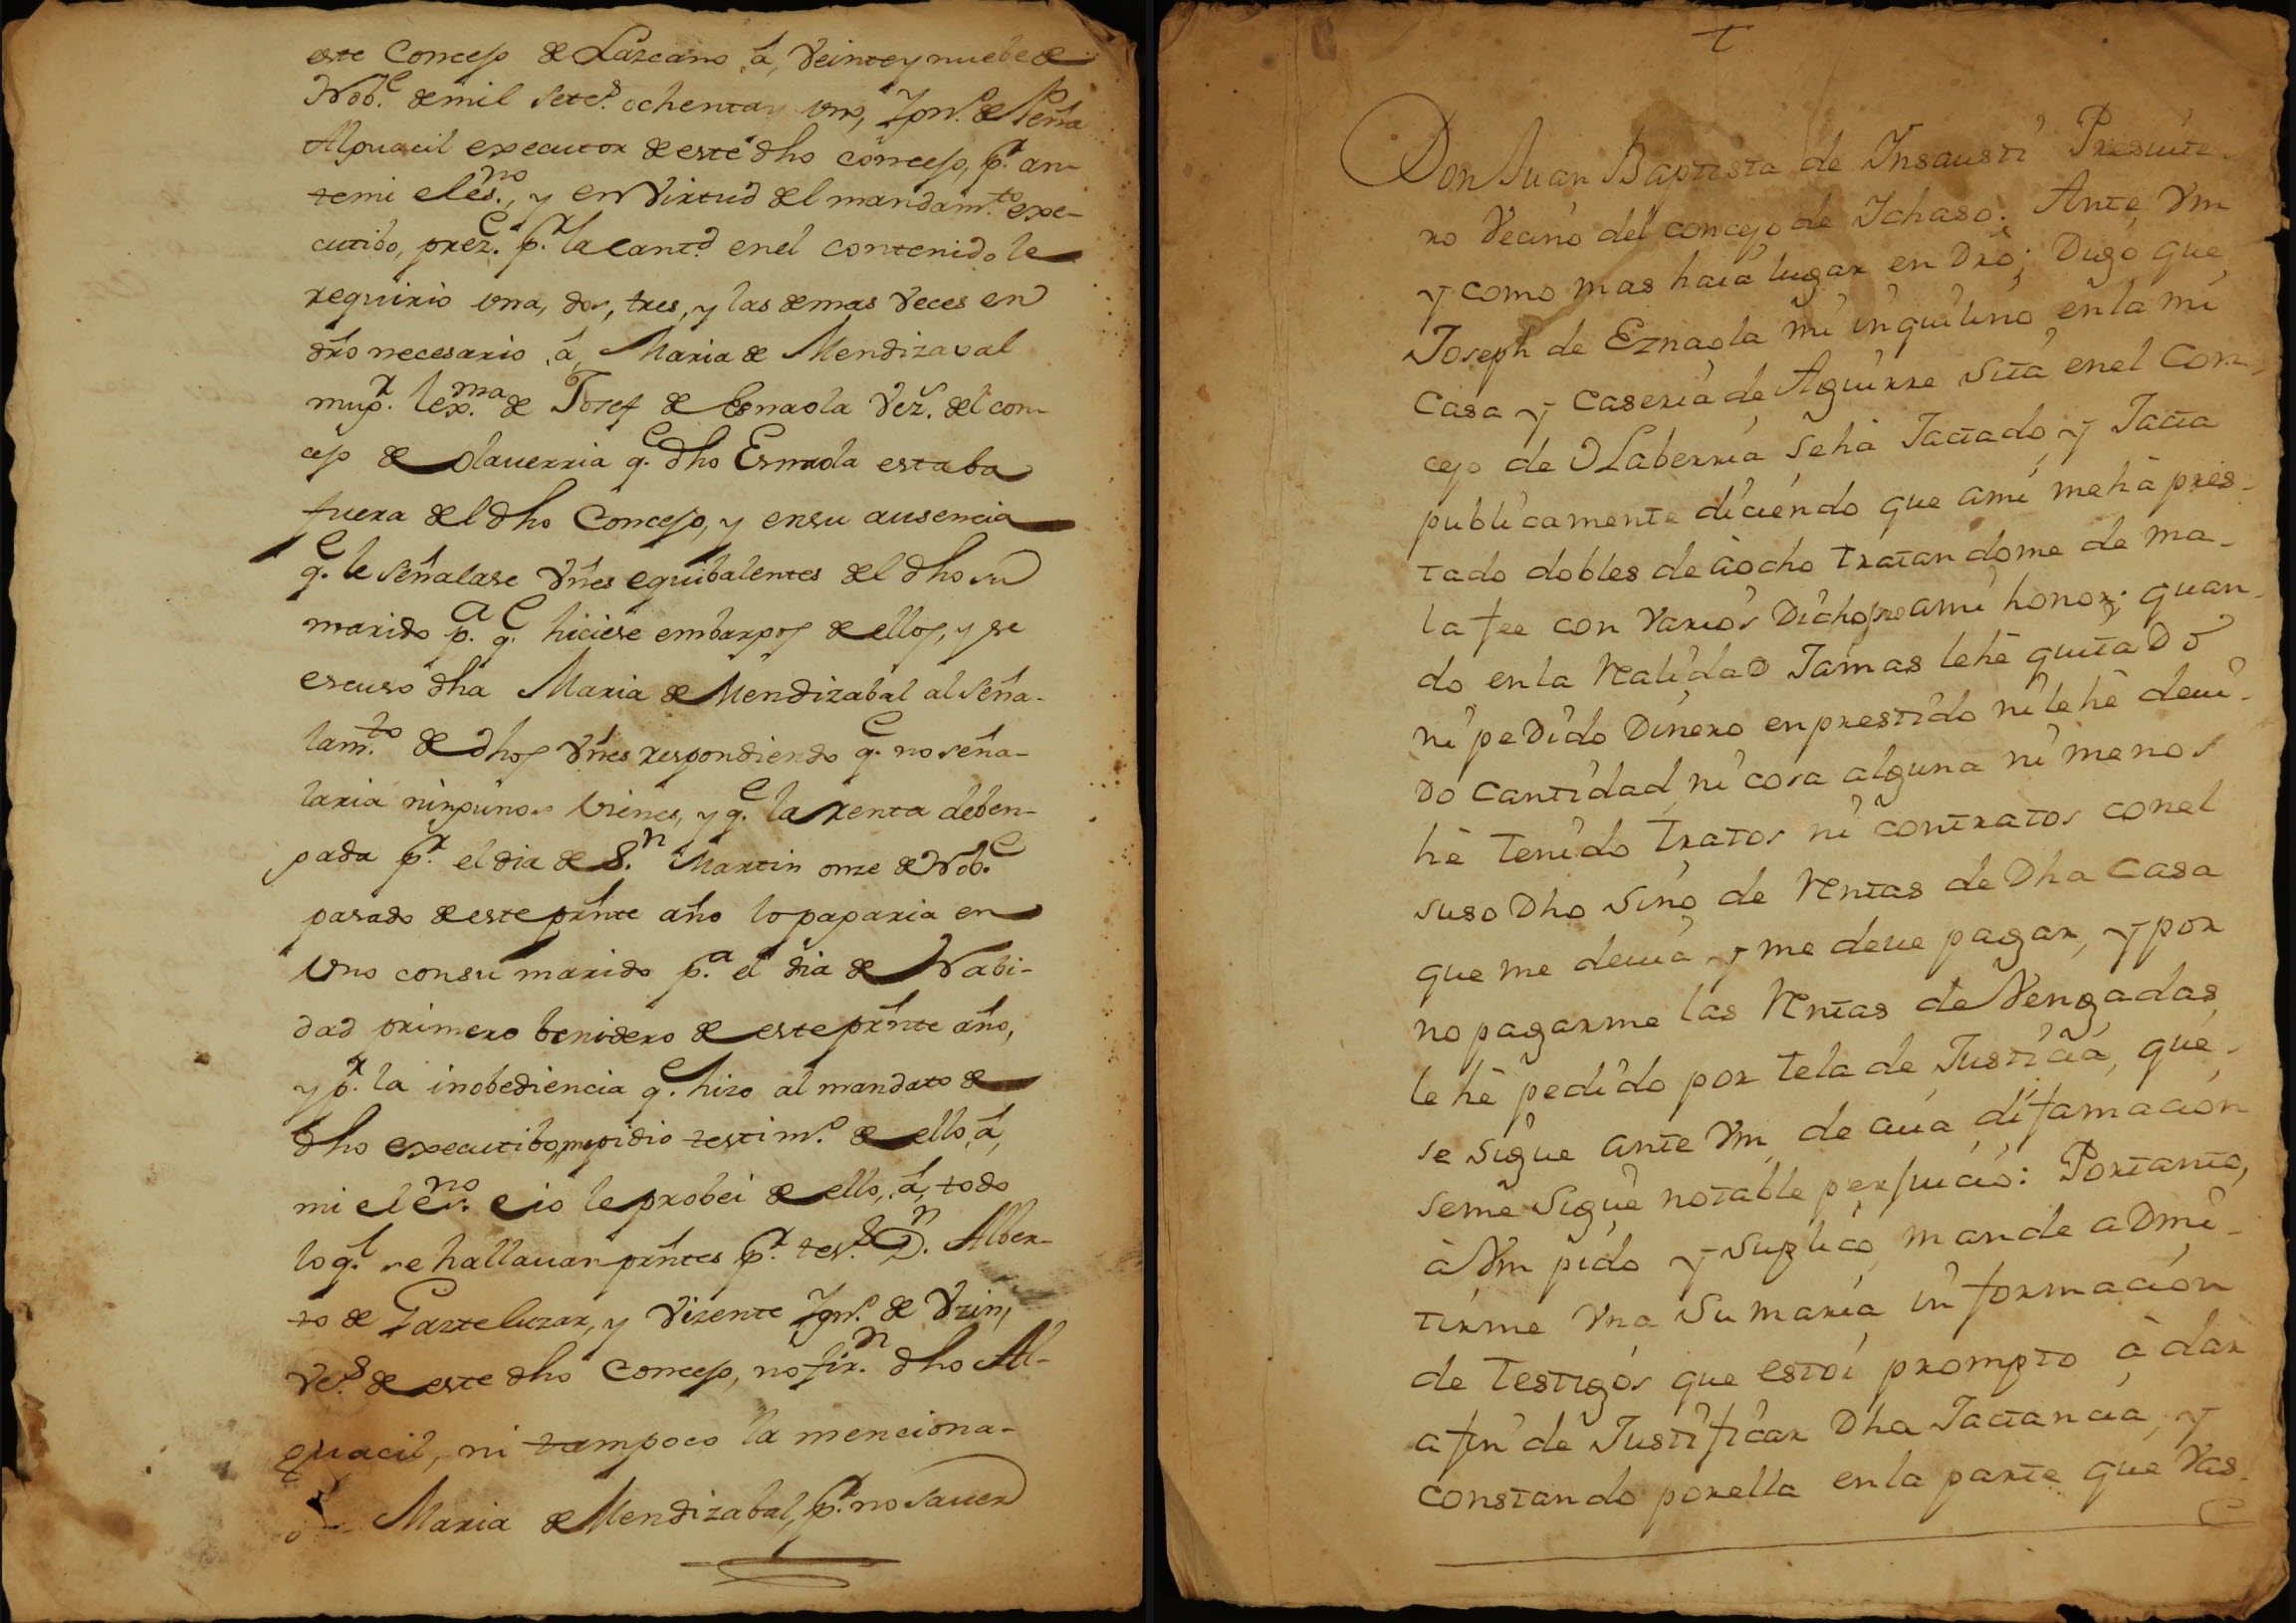 este Concejo de Lazcano, á, Veinte y nuebe de
Nobe. de mil setes. ochenta y uno, Igno. de Peña
Alguacil executor de este dho concejo, pr. an-
temi el esno., y en Virtud del mandamto. exe-
cutibo, preze. pr. la cantd. en el contenido le
requirio una, dos, tres, y las demas Veces en
dro necesario, á, Maria de Mendizaval
mugr. lexma. de Josef de Esnaola Vez. del con-
cejo de olaverria qe. dho Esnaola estaba
fuera del dho Concejo, y en su ausencia
qe. le señalase Vnes equibalentes del dho su
marido pa. qe. hiciese embargos de ellos, y se
escuso dha Maria de Mendizabal al seña-
lamto. de dhos Vnes respondiendo qe. no seña-
laria ningunos bienes, y qe. la renta deben-
gada pr. el dia de Sn. Martin onze de Nobe.
pasado de este prnte año lo pagaria en
Uno con su marido pa. el dia de Nabi-
dad primero benidero de este prnte año,
y pr. la inobediencia qe. hizo al mandato de
dho executibo, me pidio testimo. de ello, á,
mi el esno. e io le probei de ello, á, todo
lo ql. se hallavan prntes pr. tess. Dn. Alber-
to de Garteluzar, y Vizente Igno. de Vrin,
Ves. de este dho Concejo, no firn. dho Al-
guacil, ni tampoco la menciona-
Maria de Mendizabal, pr. no saver
Don Juan Baptista de Insausti Presvite-
ro Vecino del concejo de Ichaso: Ante Vm
y como mas haia lugar en Dro; Digo que
Joseph de Eznaola mi inquilino en la mi
Casa y Caseria de Aguirre sita en el Con-
cejo de OLaberria se hà Jactado, y Jacta
publicamente diciendo que ami me hà pres-
tado dobles de àocho tratandome de ma-
la fee con Varios Dichos ami honor; quan-
do en la Realidad Jamas le hè quitado
ni pedido Dinero enprestido ni le hè devi-
do Cantidad, ni cosa alguna ni menos
hè tenido tratos ni contratos con el
suso Dho sino de Rentas de Dha Casa
que me devia y me deve pagar, y por
no pagarme las Rentas deVengadas
le hè pedido por tela de Justicia, que
se sigue ante Vm, de cuia difamacion
seme sigue notable perjuicio: Portanto,
à Vm pido y suplico mande aDmi-
tirme Vna Sumaria informacion
de testigos que estoi prompto à dar
a fin de Justificar Dha Jactancia, y
constando por ella en la parte que Vas-